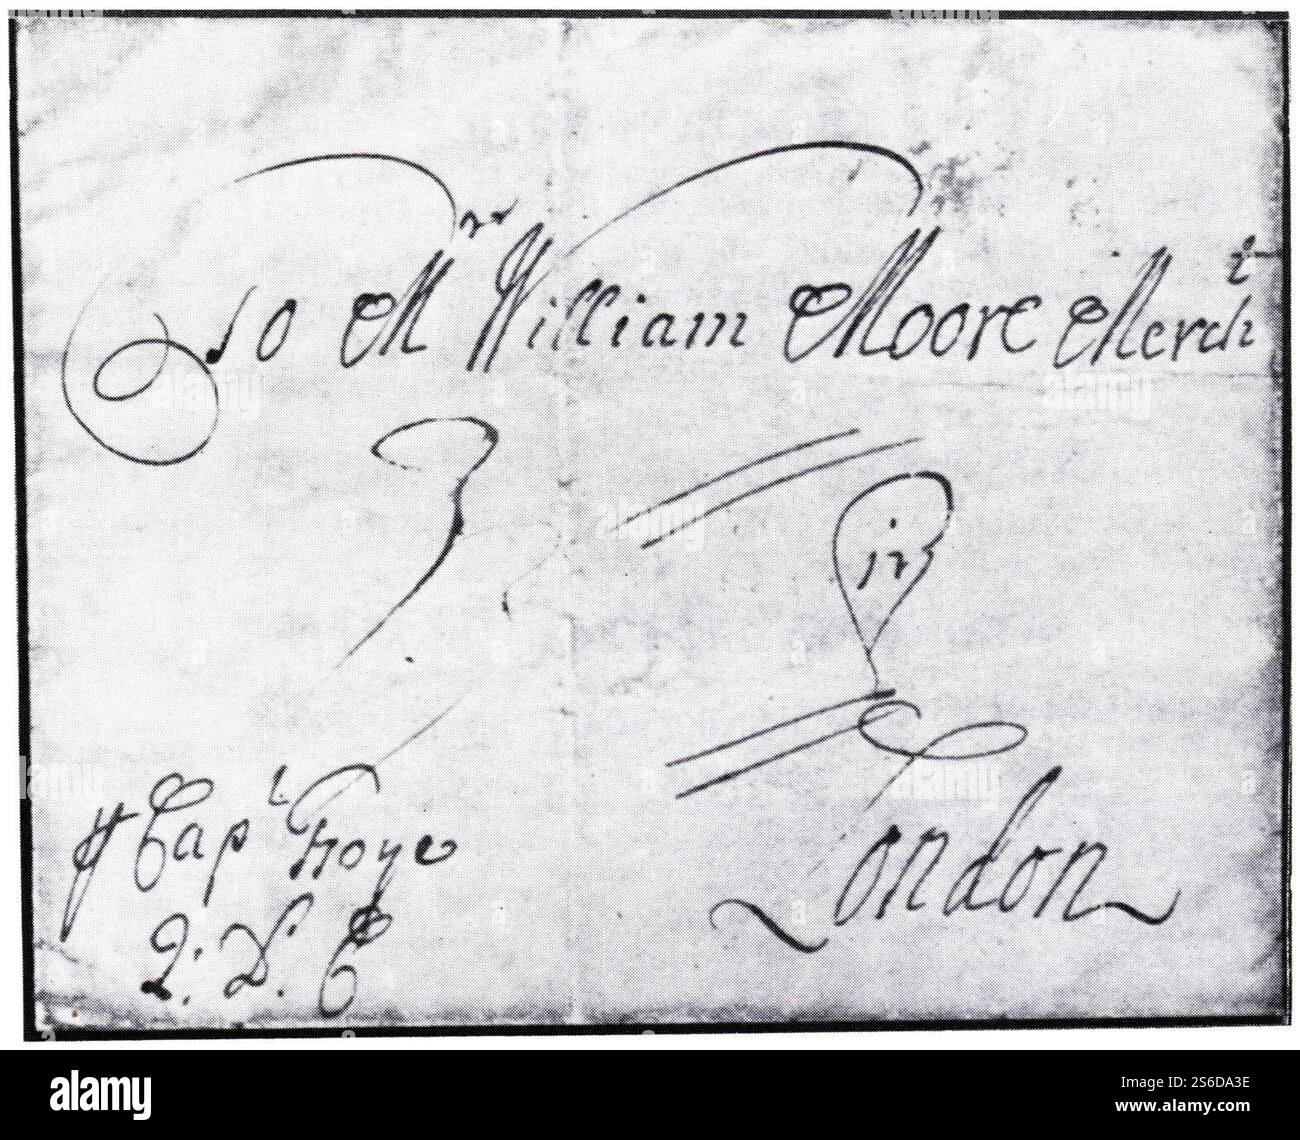 To Mr William Moore Mercht
in
London
Capt Froye
Q: D: C
alamy
Image ID: 2S6DA3E
www.alamy.com